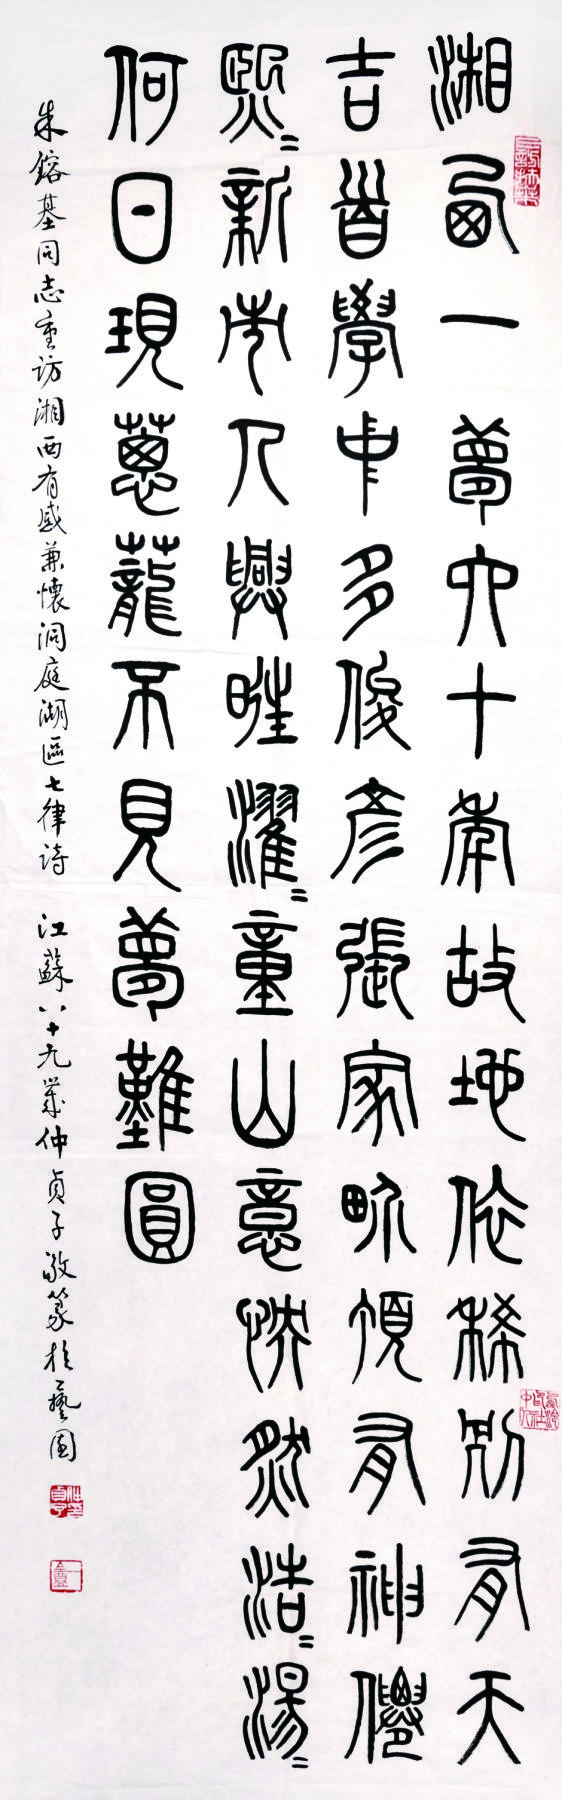 湘西一夢六十年故地依稀別有天
吉首學中多俊彥張家畍頂有神僊
熙=新市人興旺濯=童山意怏然浩=湯=
何日現蔥蘢不見夢難圓
朱鎔基同志重访湘西有感兼懷洞庭湖區七律诗 江蘇八十九歲仲貞子敬篆於藝園